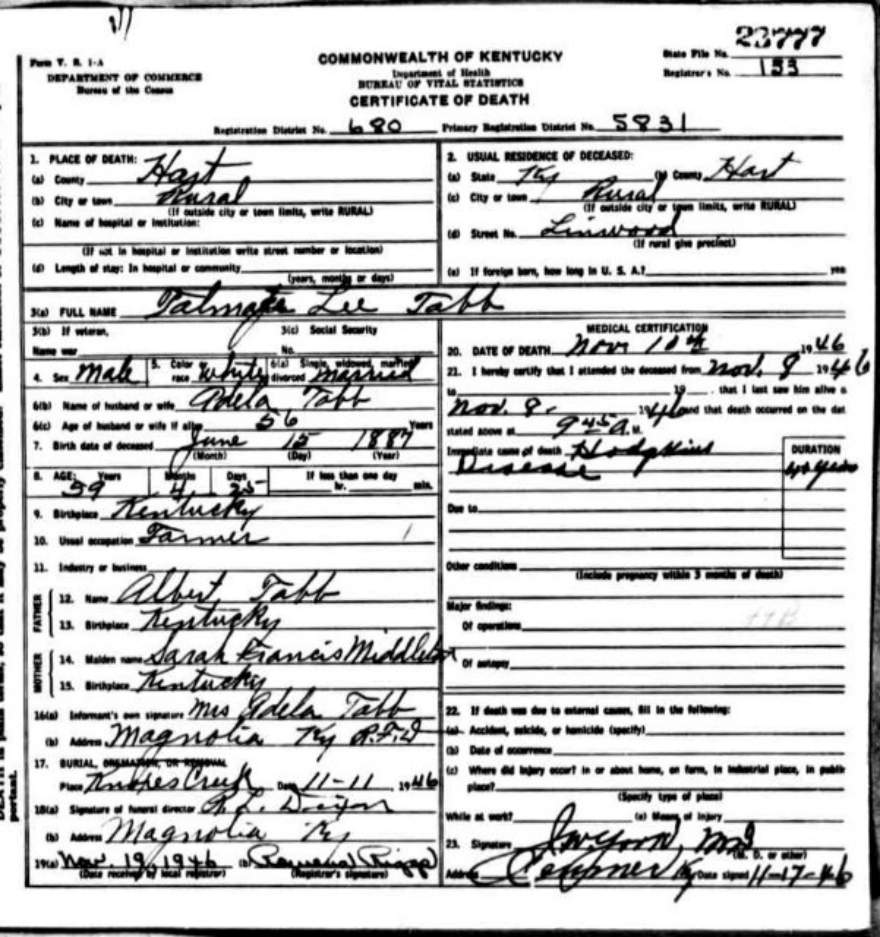 23777
Form V. S. 1-A
COMMONWEALTH OF KENTUCKY
State File No.
DEPARTMENT OF COMMERCE
Department of Health
Registrar's No. 133
Bureau of the Census
BUREAU OF VITAL STATISTICS
CERTIFICATE OF DEATH
Registration District No. 680 Primary Registration District No. 5831
1. PLACE OF DEATH:
(a) County Hart
(b) City or town Rural
(If outside city or town limits, write RURAL)
(c) Name of hospital or institution:
(If not in hospital or institution write street number or location)
(d) Length of stay: In hospital or community
(years, months or days)
2. USUAL RESIDENCE OF DECEASED:
(a) State Ky (b) County Hart
(c) City or town Rural
(If outside city or town limits, write RURAL)
(d) Street No. Linwood
(If rural give precinct)
(e) If foreign born, how long in U. S. A.? yrs
3(a) FULL NAME Lee Tabb
3(b) If veteran, 3(c) Social Security
Name war No.
4. Sex Male 5. Color or race White 6(a) Single, widowed, married, divorced Married
6(b) Name of husband or wife Adela Tabb
6(c) Age of husband or wife if alive 56 Years
7. Birth date of deceased June 15 1887
(Month) (Day) (Year)
8. AGE: Years Months Days If less than one day
59 4 25 hr. min.
9. Birthplace Kentucky
10. Usual occupation Farmer
11. Industry or business
FATHER
12. Name Albert Tabb
13. Birthplace Kentucky
MOTHER
14. Maiden name Sarah Francis Middleton
15. Birthplace Kentucky
16(a) Informant's own signature Mrs Adela Tabb
(b) Address Magnolia Ky R.F.D
17. BURIAL, CREMATION, OR REMOVAL
Place Creek Date 11-11 1946
18(a) Signature of funeral director
(b) Address Magnolia Ky
19(a) Nov. 19, 1946 (b)
(Date received by local registrar) (Registrar's signature)
MEDICAL CERTIFICATION
20. DATE OF DEATH Nov 10th 1946
21. I hereby certify that I attended the deceased from Nov. 8 1946
to 19 , that I last saw him alive o
Nov. 8. 1946 and that death occurred on the dat
stated above at 9 45 A. M.
Immediate cause of death Hodgkins
Disease
DURATION
Due to
Other conditions
(Include pregnancy within 3 months of death)
Major findings:
Of operations
Of autopsy
22. If death was due to external causes, fill in the following:
(a) Accident, suicide, or homicide (specify)
(b) Date of occurrence
(c) Where did injury occur? in or about home, on farm, in industrial place, in public
place?
(Specify type of place)
While at work? (e) Means of injury
23. Signature
(M. D. or other)
Address Ky Date signed 11-17-46